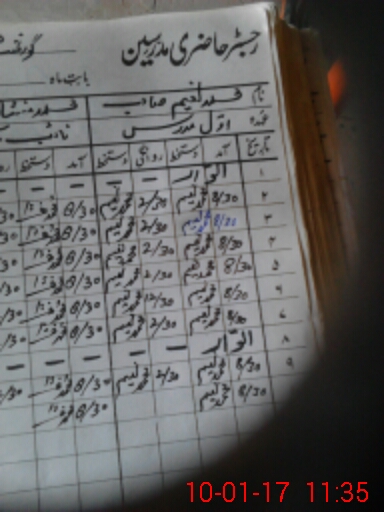 رجسٹر حاضری مدرسین گورنمنٹ
بابت ماہ
نام محمد نعیم صاحب
عہدہ اوّل مدرس نائب
تاریخ آمد دستخط روانگی دستخط آمد دستخط
۱ اتوار
۲ 8/30 محمد نعیم 2/30 محمد نعیم 8/30
۳ 8/30 محمد نعیم 2/30 محمد نعیم 8/30
۴ 8/30 محمد نعیم 2/30 محمد نعیم 8/30
۵ 8/30 محمد نعیم 2/30 محمد نعیم 8/30
۶ 8/30 محمد نعیم 12/30 محمد نعیم 8/30
۷ 8/30 محمد نعیم 2/30 محمد نعیم 8/30
۸ اتوار
۹ 8/30 محمد نعیم 2/30 محمد نعیم 8/30
8/30 محمد نعیم 8/30
10-01-17 11:35